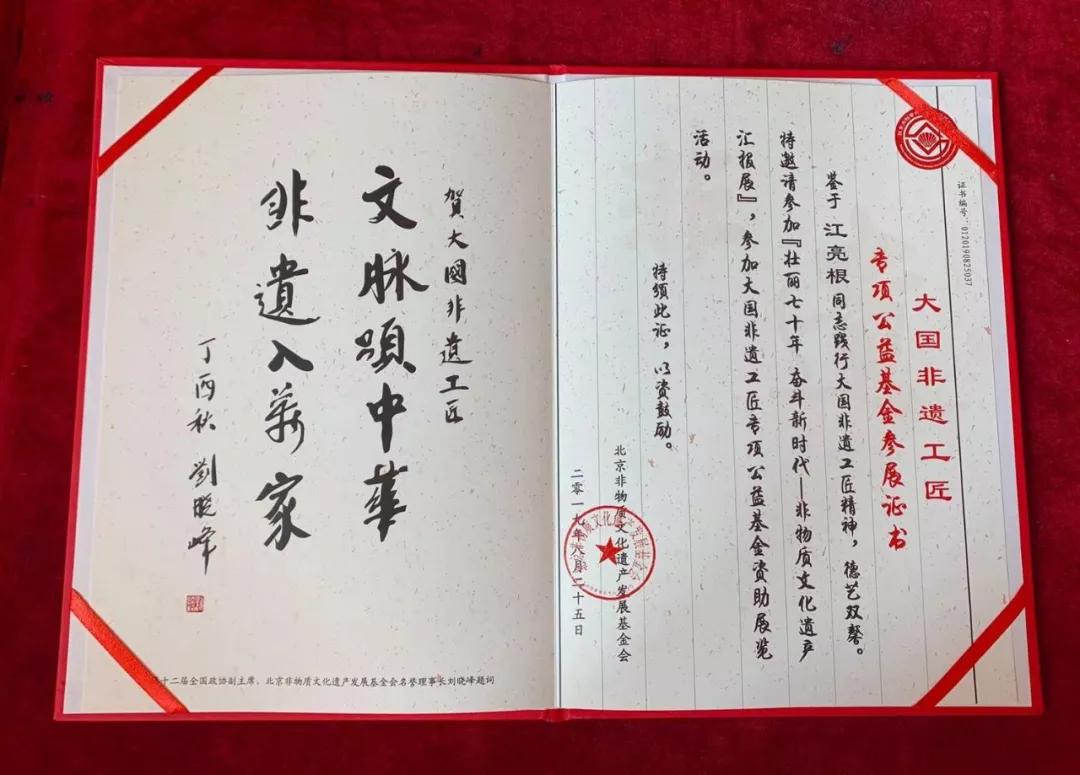 大国非遗工匠
专项公益基金参展证书
证书编号：0120190825037
鉴于 江亮根 同志践行大国非遗工匠精神，德艺双馨。
特邀请参加『壮丽七十年 奋斗新时代—非物质文化遗产
汇报展』，参加大国非遗工匠专项公益基金资助展览
活动。
特颁此证，以资鼓励。
北京非物质文化遗产发展基金会
二零一九年八月二十五日
賀大國非遗工匠
文脉頌中華
非遺入萬家
丁酉秋 劉晓峰
十二届全国政协副主席、北京非物质文化遗产发展基金会名誉理事长刘晓峰题词